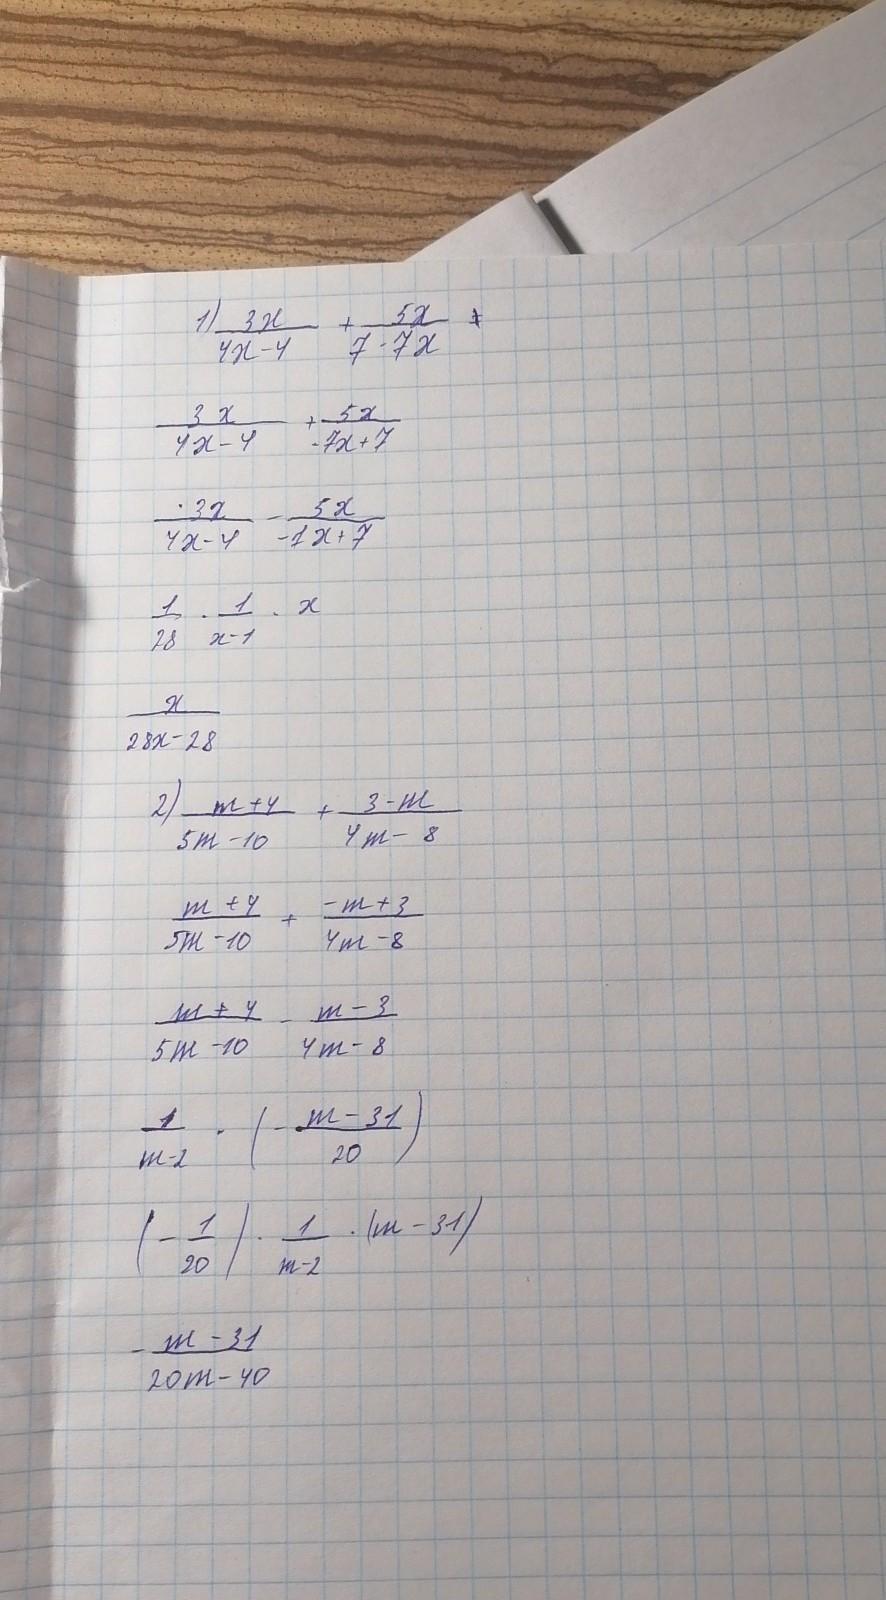 1) 3x/(4x-4) + 5x/(7-7x)
3x/(4x-4) + 5x/(-7x+7)
3x/(4x-4) - 5x/(-7x+7)
1/28 · 1/(x-1) · x
x/(28x-28)
2) (m+4)/(5m-10) + (3-m)/(4m-8)
(m+4)/(5m-10) + (-m+3)/(4m-8)
(m+4)/(5m-10) - (m-3)/(4m-8)
1/(m-2) · (-(m-31)/20)
(-1/20) · 1/(m-2) · (m-31)
-(m-31)/(20m-40)